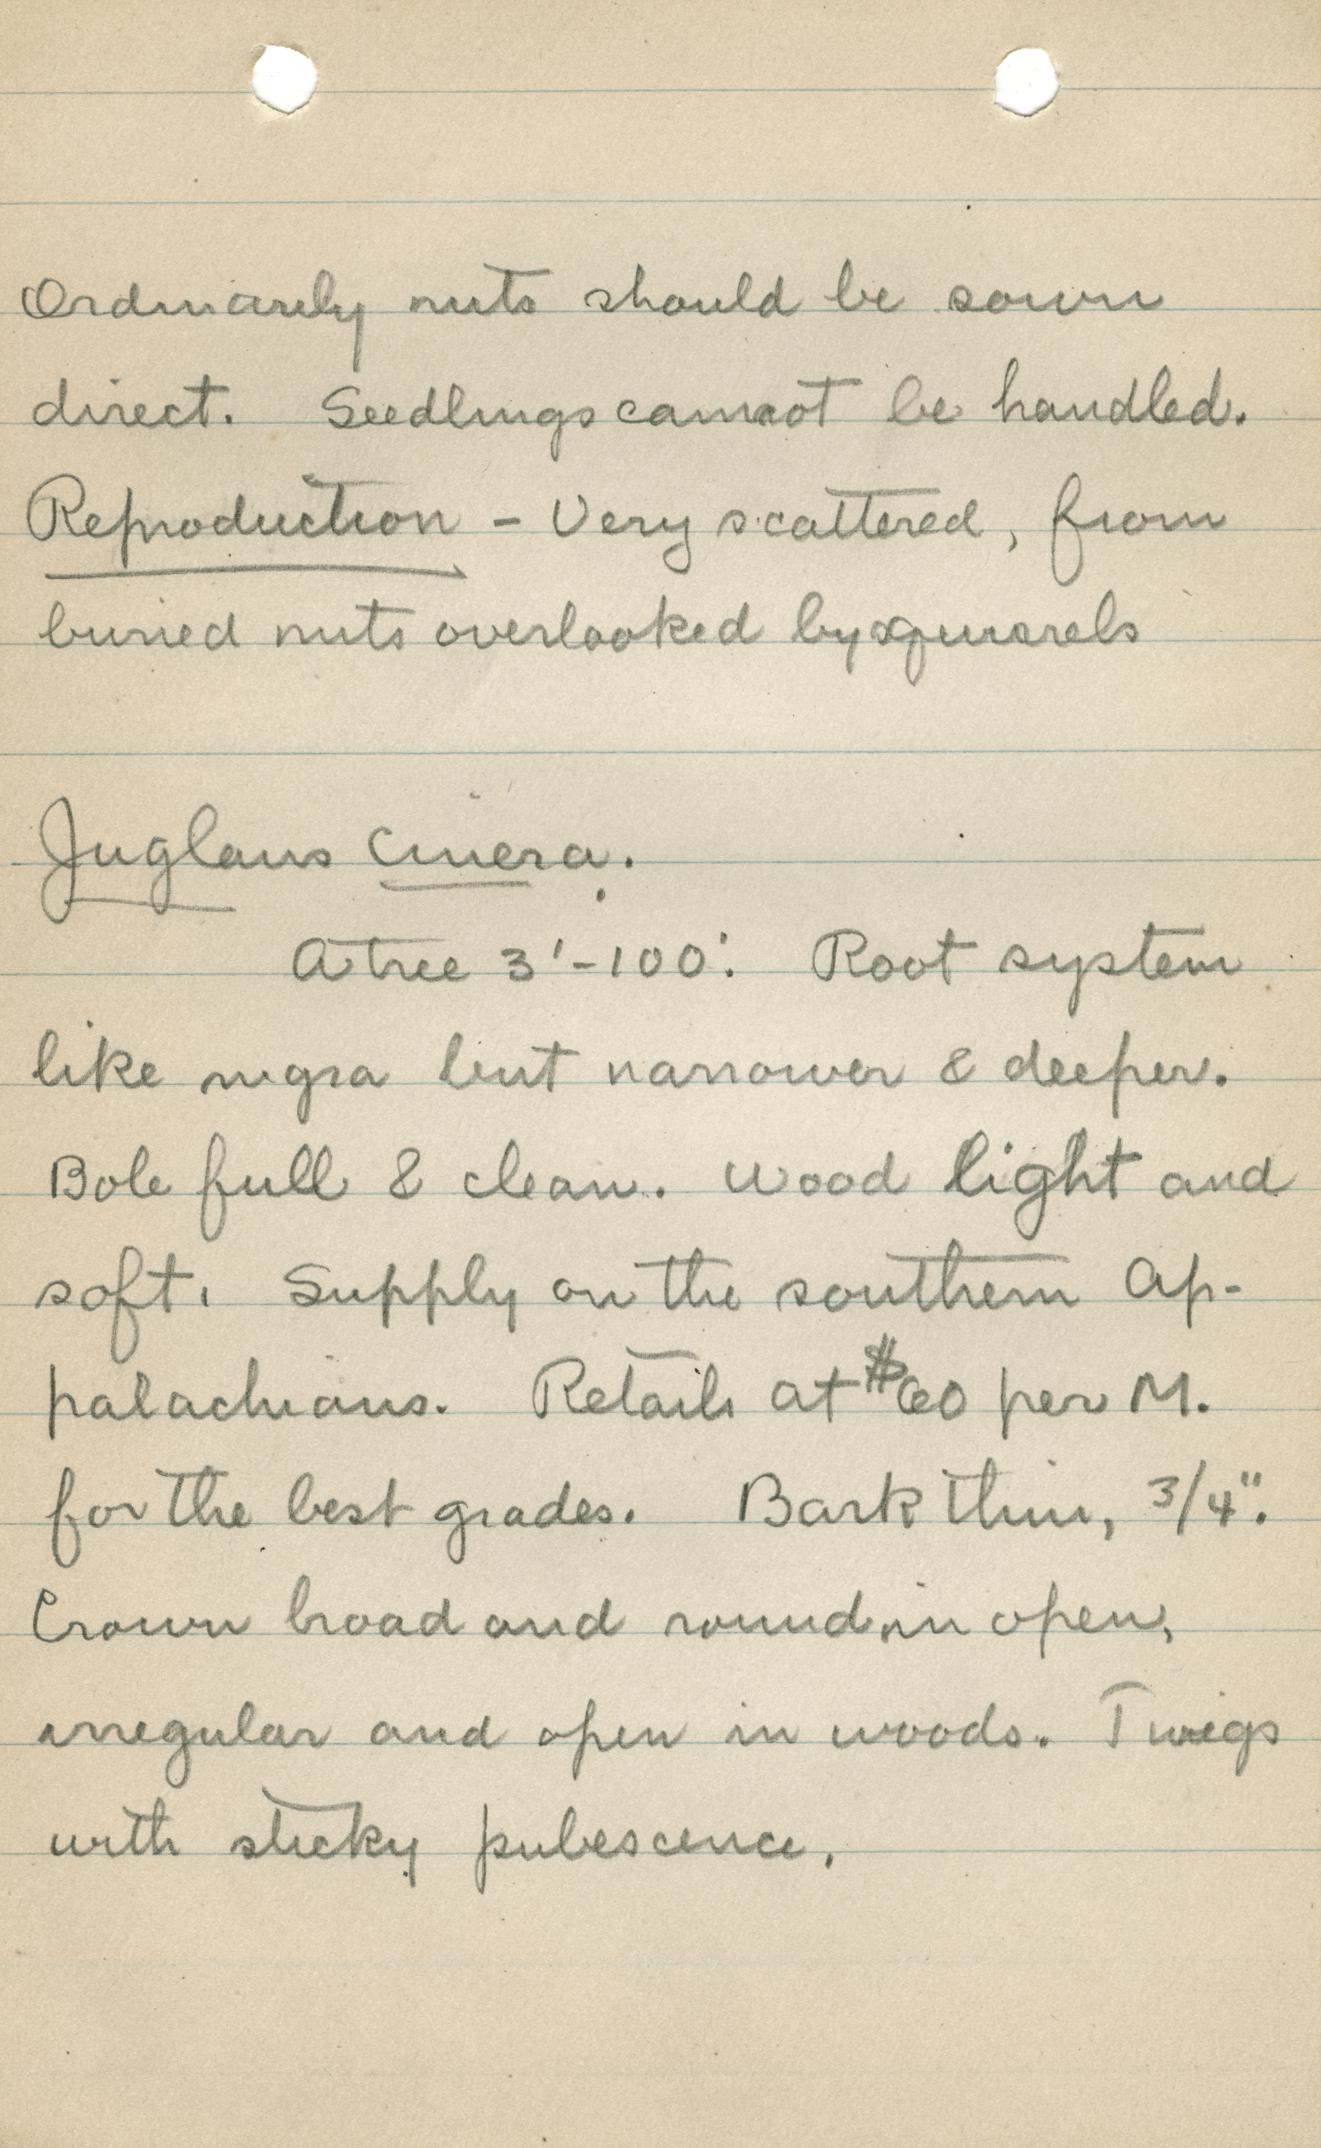 Ordinarily nuts should be sown
direct. Seedlings cannot be handled.
Reproduction - Very scattered, from
buried nuts overlooked by squirrels
Juglans cinera.
A tree 3'-100'. Root system
like nigra but narrower & deeper.
Bole full & clean. Wood light and
soft. Supply on the southern Ap-
palachians. Retails at $60 per M.
for the best grades. Bark thin, 3/4".
Crown broad and round in open,
irregular and open in woods. Twigs
with sticky pubescence.